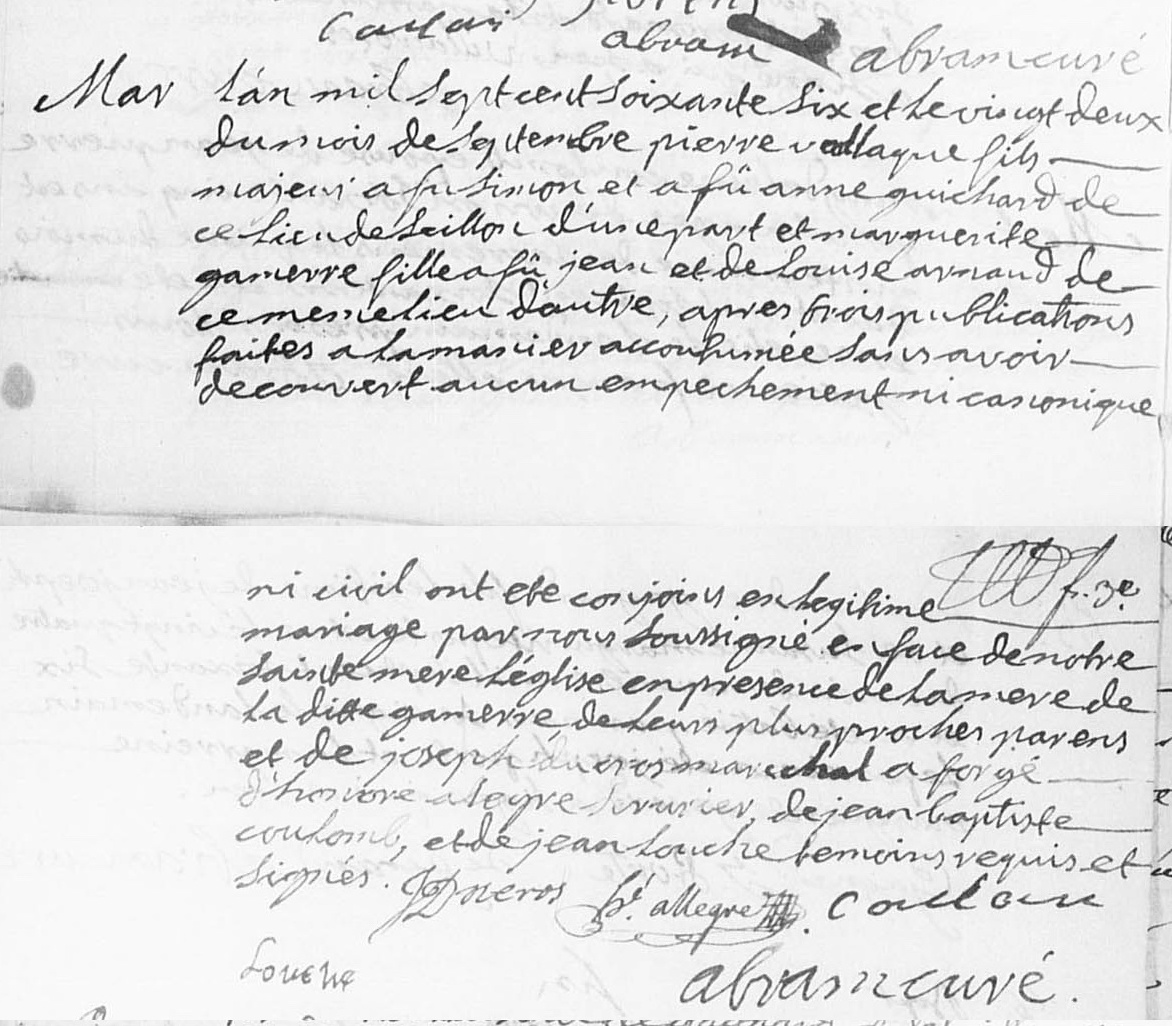 abram abram curé
Mar l'an mil sept cent soixante six et le vingt deux
du mois de septembre pierre vallaque fils
majeur a fu simon et a fû anne guichard de
ce lieu de seillon d'une part et marguerite
gamerre fille a fû jean et de louise arnaud de
ce meme lieu d'autre, apres trois publications
faites a la manier accoutumée sans avoir
decouvert aucun empechement ni canonique
ni civil ont ete conjoins en legitime f. 3e
mariage par nous soussigné en face de notre
sainte mere l'église en presence de la mere de
la ditte gamerre, de leurs plus proches parens
et de joseph ducros marechal a forge
d'honore alegre serurier, de jean baptiste
coulomb, et de jean louche temoins requis et
signés. J Ducros h. allegre
Louche abram curé.